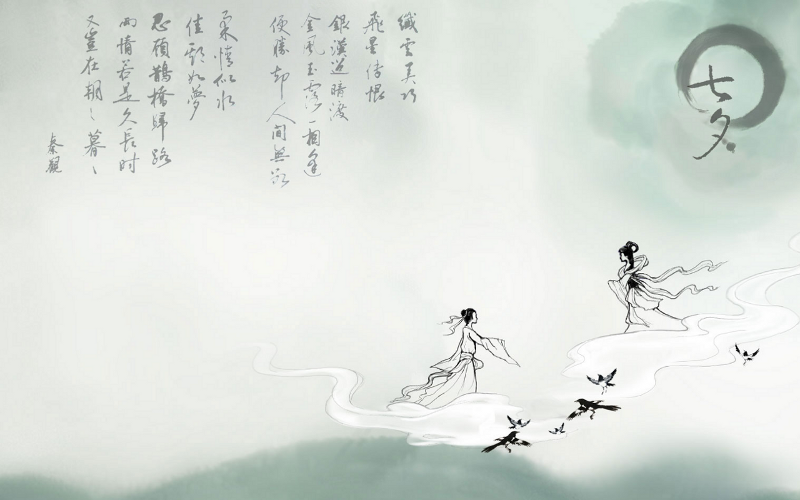 七夕
纖雲弄巧
飛星傳恨
銀漢迢暗渡
金風玉露一相逢
便勝卻人間無數
柔情似水
佳期如夢
忍顧鵲橋歸路
兩情若是久長時
又豈在朝〻暮〻
秦觀